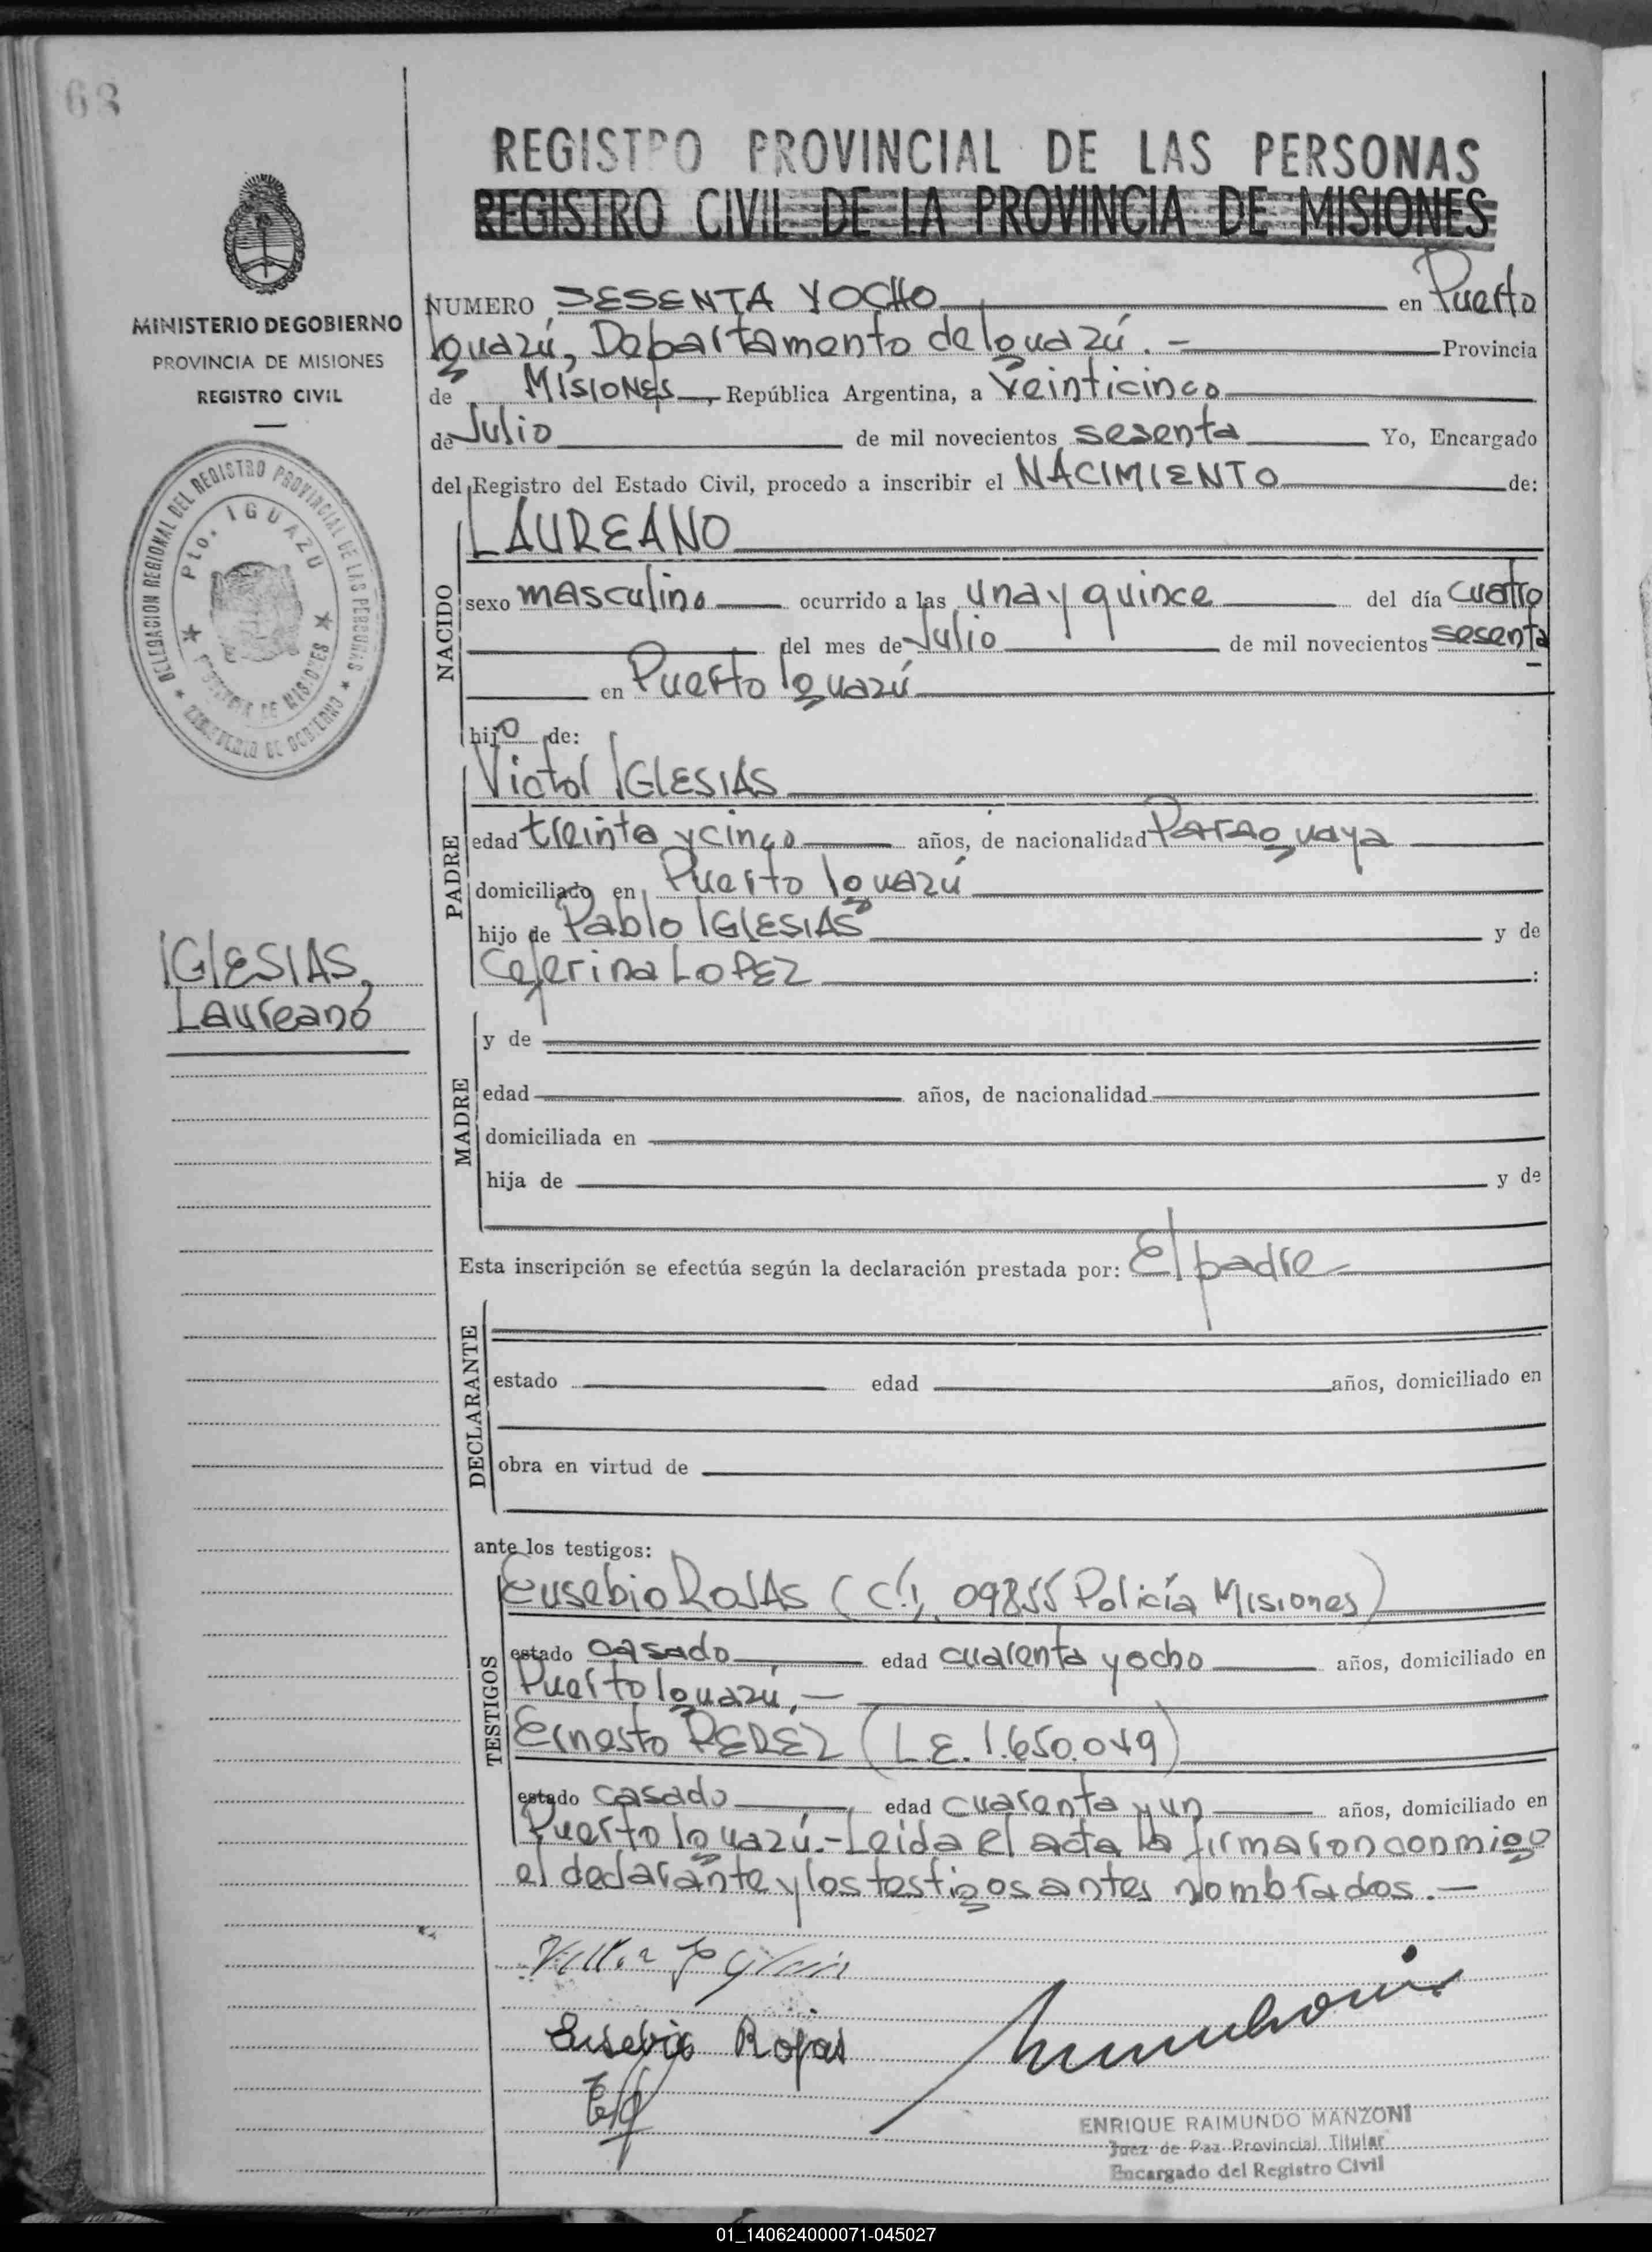 68
REGISTRO PROVINCIAL DE LAS PERSONAS
REGISTRO CIVIL DE LA PROVINCIA DE MISIONES
MINISTERIO DE GOBIERNO
PROVINCIA DE MISIONES
REGISTRO CIVIL
DELEGACION REGIONAL DEL REGISTRO PROVINCIAL DE LAS PERSONAS
Pto. IGUAZU
PROVINCIA DE MISIONES
MINISTERIO DE GOBIERNO
IGLESIAS,
Laureano
NUMERO SESENTA Y OCHO en Puerto
Iguazú, Departamento de Iguazú.- Provincia
de Misiones, República Argentina, a veinticinco
de Julio de mil novecientos sesenta Yo, Encargado
del Registro del Estado Civil, procedo a inscribir el NACIMIENTO de:
NACIDO
LAUREANO
sexo masculino ocurrido a las una y quince del día cuatro
del mes de Julio de mil novecientos sesenta
en Puerto Iguazú
hijo de:
PADRE
Victor IGLESIAS
edad treinta y cinco años, de nacionalidad Paraguaya
domiciliado en Puerto Iguazú
hijo de Pablo IGLESIAS y de
Ceferina LOPEZ :
MADRE
y de
edad años, de nacionalidad
domiciliada en
hija de y de
Esta inscripción se efectúa según la declaración prestada por: El padre
DECLARANTE
estado edad años, domiciliado en
obra en virtud de
ante los testigos:
TESTIGOS
Eusebio ROJAS (C.I. 09855 Policía Misiones)
estado casado edad cuarenta y ocho años, domiciliado en
Puerto Iguazú.-
Ernesto PEREZ (L.E. 1.650.049)
estado casado edad cuarenta y un años, domiciliado en
Puerto Iguazú.- Leida el acta la firmaron conmigo
el declarante y los testigos antes nombrados.-
Eusevio Rojas
ENRIQUE RAIMUNDO MANZONI
Juez de Paz Provincial Titular
Encargado del Registro Civil
01_140624000071-045027